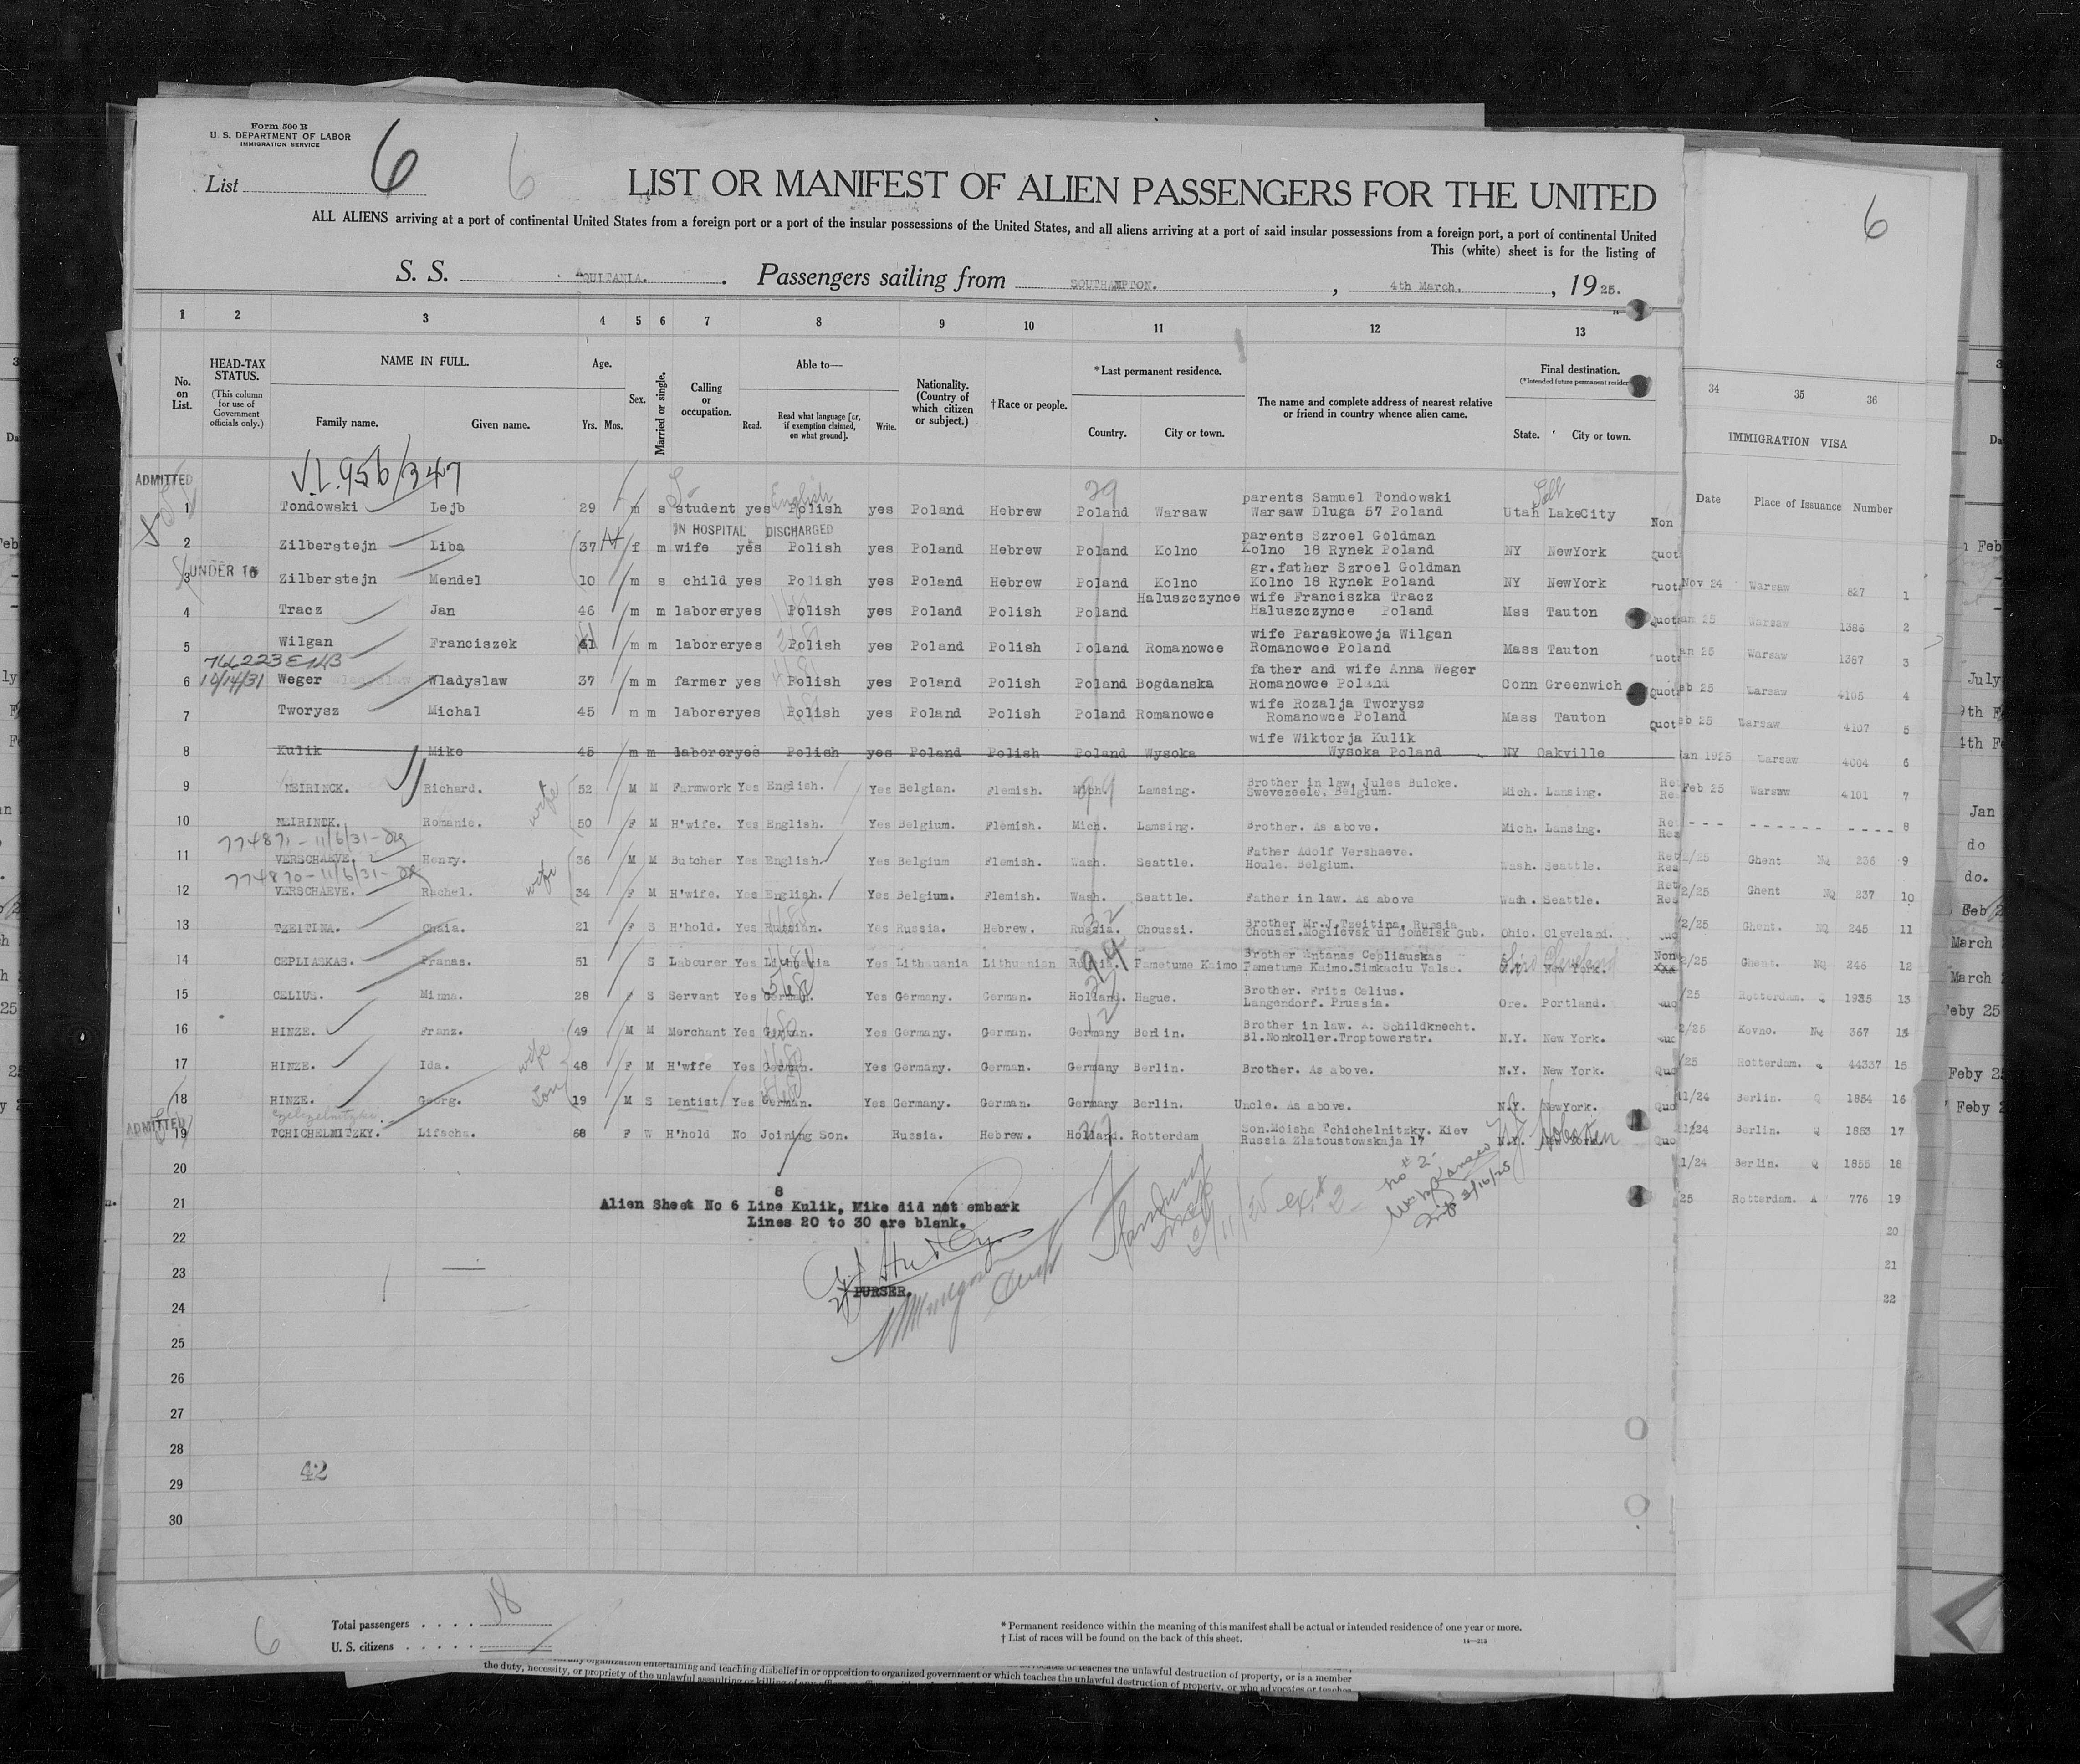 Form 500 B
U. S. DEPARTMENT OF LABOR
IMMIGRATION SERVICE
List 6
6
6
LIST OR MANIFEST OF ALIEN PASSENGERS FOR THE UNITED
ALL ALIENS arriving at a port of continental United States from a foreign port or a port of the insular possessions of the United States, and all aliens arriving at a port of said insular possessions from a foreign port, a port of continental United
This (white) sheet is for the listing of
S. S. AQUITANIA. Passengers sailing from SOUTHAMPTON. , 4th March. , 1925.
1 2 3 4 5 6 7 8 9 10 11 12 13
34 35 36
No. on List.
HEAD-TAX STATUS.
(This column for use of Government officials only.)
NAME IN FULL.
Family name. Given name.
Age.
Yrs. Mos.
Sex.
Married or single.
Calling or occupation.
Able to—
Read. Read what language [or, if exemption claimed, on what ground]. Write.
Nationality. (Country of which citizen or subject.)
† Race or people.
*Last permanent residence.
Country. City or town.
The name and complete address of nearest relative or friend in country whence alien came.
Final destination.
(*Intended future permanent residen
State. City or town.
IMMIGRATION VISA
Date Place of Issuance Number
V.L. 956/347
ADMITTED
29 English Salt
1 Tondowski Lejb 29 m s student yes Polish yes Poland Hebrew Poland Warsaw parents Samuel Tondowski Warsaw Dluga 57 Poland Utah LakeCity Non
IN HOSPITAL DISCHARGED
2 Zilberstejn Liba 37 f m wife yes Polish yes Poland Hebrew Poland Kolno parents Szroel Goldman Kolno 18 Rynek Poland NY NewYork quot
UNDER 16
3 Zilberstejn Mendel 10 m s child yes Polish yes Poland Hebrew Poland Kolno gr.father Szroel Goldman Kolno 18 Rynek Poland NY NewYork quot
4 Tracz Jan 46 m m laborer yes Polish yes Poland Polish Poland Haluszczynce wife Franciszka Tracz Haluszczynce Poland Mss Tauton Quot
5 Wilgan Franciszek 41 m m laborer yes Polish yes Poland Polish Poland Romanowce wife Paraskoweja Wilgan Romanowce Poland Mass Tauton quot
10/14/31
6 Weger Wladyslaw 37 m m farmer yes Polish yes Poland Polish Poland Bogdanska father and wife Anna Weger Romanowce Poland Conn Greenwich Quot
7 Tworysz Michal 45 m m laborer yes Polish yes Poland Polish Poland Romanowce wife Rozalja Tworysz Romanowce Poland Mass Tauton quot
8 Kulik Mike 45 m m laborer yes Polish yes Poland Polish Poland Wysoka wife Wiktorja Kulik Wysoka Poland NY Oakville
9 MEIRINCK. Richard. 52 M M Farmwork Yes English. Yes Belgian. Flemish. Mich. Lansing. Brother in law, Jules Bulcke. Swevezeele. Belgium. Mich. Lansing.
wife
10 MEIRINCK. Romanie. 50 F M H'wife. Yes English. Yes Belgium. Flemish. Mich. Lamsing. Brother. As above. Mich. Lansing.
774871 - 11/6/31 -
11 VERSCHAEVE. Henry. 36 M M Butcher Yes English Yes Belgium Flemish. Wash. Seattle. Father Adolf Vershaeve. Houle. Belgium. Wash. Seattle.
774870 - 11/6/31 -
wife
12 VERSCHAEVE. Rachel. 34 F M H'wife. Yes English. Yes Belgium. Flemish. Wash. Seattle. Father in law. As above Wash. Seattle.
13 TZEITINA. Chaia. 21 F S H'hold. Yes Russian. Yes Russia. Hebrew. Russia. Choussi. Brother Mr.J.Tzeitina, Russia Choussi.Mogilevsk Gub. Ohio. Cleveland.
14 CEPLIASKAS. Pranas. 51 S Labourer Yes Lithuania Yes Lithauania Lithuanian Russia. Pametume Kaimo Brother Antanas Cepliauskas Pametume Kaimo.Simkaciu Valsc. N.Y. New York. Ohio Cleveland
15 CELIUS. Minna. 28 F S Servant Yes German. Yes Germany. German. Holland. Hague. Brother. Fritz Celius. Langendorf. Prussia. Ore. Portland.
16 HINZE. Franz. 49 M M Merchant Yes German. Yes Germany. German. Germany Berlin. Brother in law. A. Schildknecht. Bl.Nonkoller.Troptowerstr. N.Y. New York.
wife
17 HINZE. Ida. 48 F M H'wife Yes German. Yes Germany. German. Germany Berlin. Brother. As above. N.Y. New York. Quo
Son
18 HINZE. Georg. 19 M S Dentist Yes German. Yes Germany. German. Germany Berlin. Uncle. As above. N.Y. NewYork. Quo
ADMITTED
19 TCHICHELNITZKY. Lifscha. 68 F W H'hold No Joining Son. Russia. Hebrew. Holland. Rotterdam Son.Moisha Tchichelnitzky. Kiev Russia Zlatoustowskaja 17 N.Y. New York. Quo
NJ Hoboken
20
21
22
23
24
25
26
27
28
29
30
8
Alien Sheet No 6 Line Kulik, Mike did not embark
Lines 20 to 30 are blank.
PURSER.
3/11/25 ex. #2
No #2
3/16/25
42
Nov 24 Warsaw 827 1
an 25 Warsaw 1386 2
an 25 Warsaw 1387 3
eb 25 Warsaw 4105 4
eb 25 Warsaw 4107 5
Jan 1925 Warsaw 4004 6
Feb 25 Warsaw 4101 7
- - - - - - - - - - - - - 8
2/25 Ghent NQ 236 9
2/25 Ghent NQ 237 10
2/25 Ghent. NQ 245 11
2/25 Ghent. NQ 246 12
/25 Rotterdam. Q 1935 13
2/25 Kovno. NQ 367 14
/25 Rotterdam. Q 44337 15
11/24 Berlin. Q 1854 16
11/24 Berlin. Q 1853 17
11/24 Berlin. Q 1855 18
25 Rotterdam. A 776 19
20
21
22
6
Total passengers . . . . 18
U. S. citizens . . . . .
* Permanent residence within the meaning of this manifest shall be actual or intended residence of one year or more.
† List of races will be found on the back of this sheet.
14—213
the duty, necessity, or propriety of the unlawful assaulting or killing of any
teaches the unlawful destruction of property, or is a member
teaches the unlawful destruction of property, or who advocates or teaches